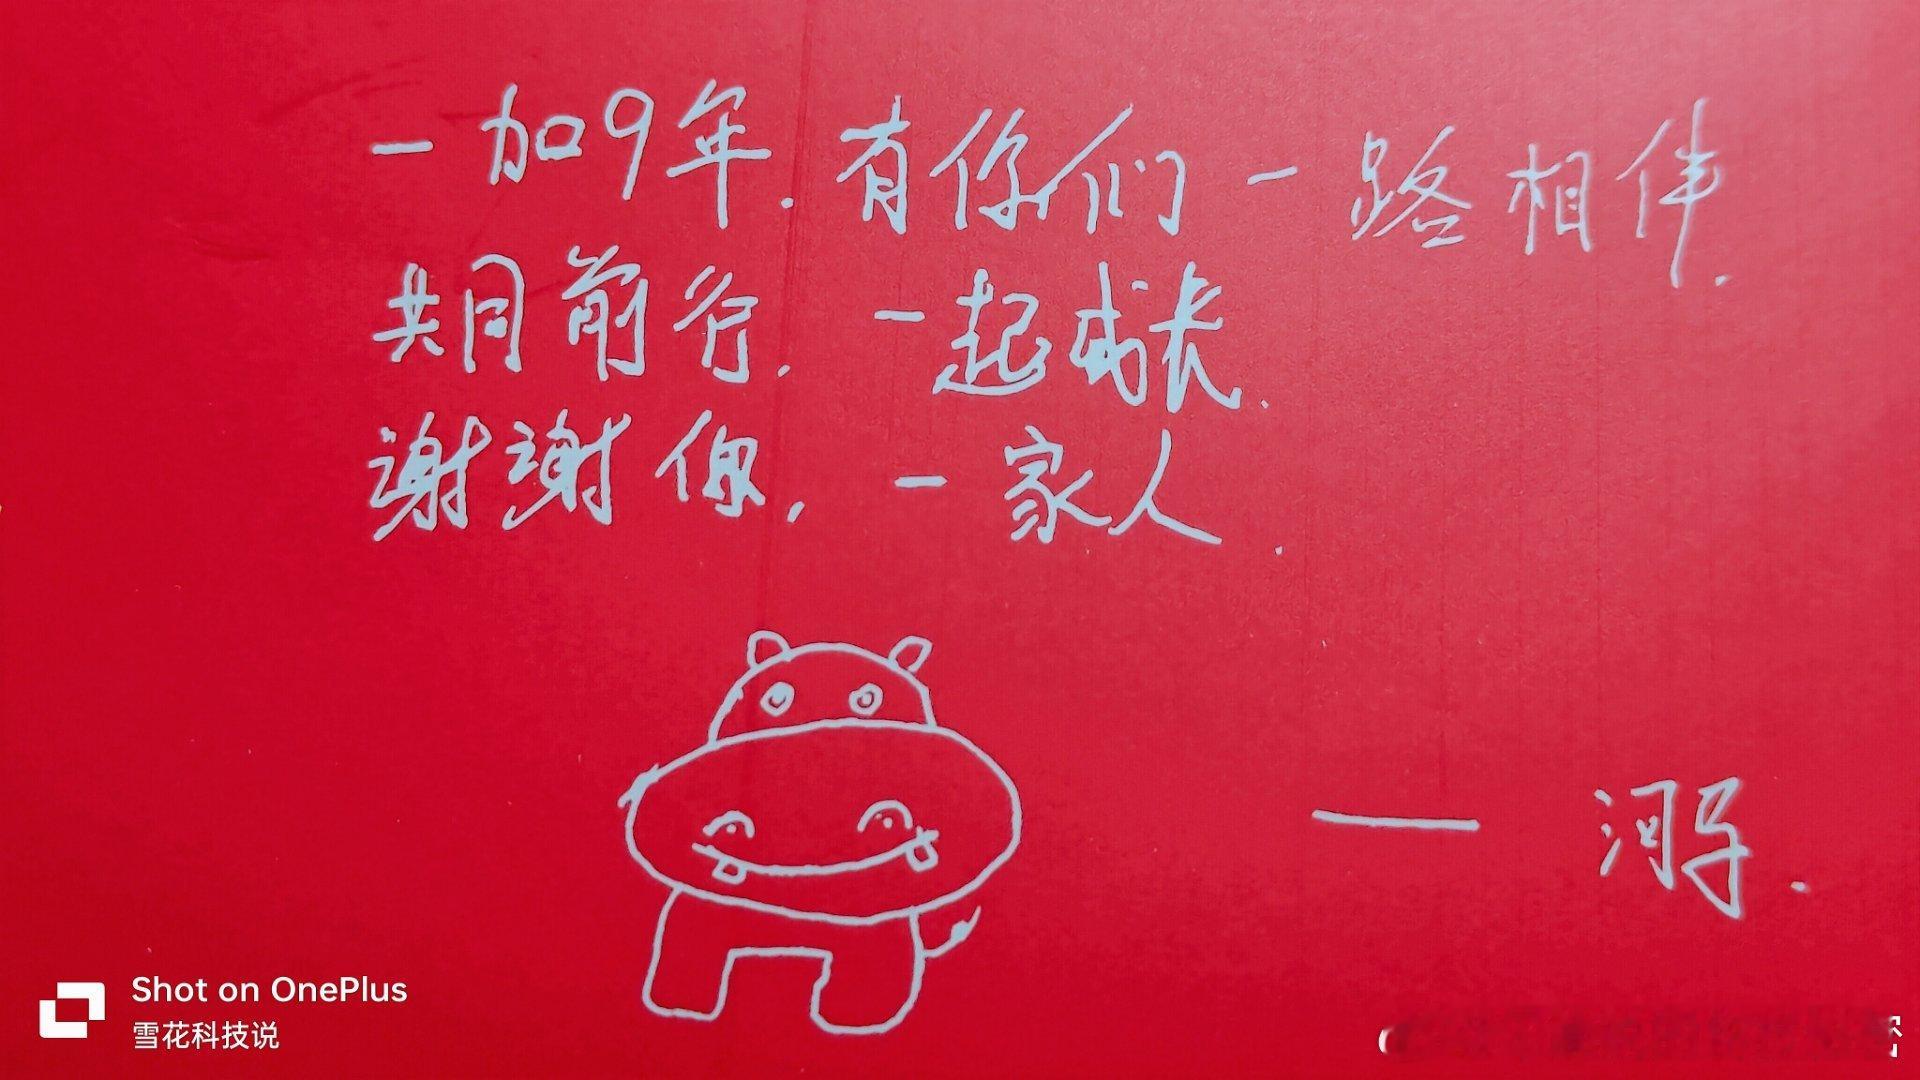 一加9年.有你们一路相伴.
共同前行.一起成长.
谢谢你,一家人.
Shot on OnePlus
雪花科技说